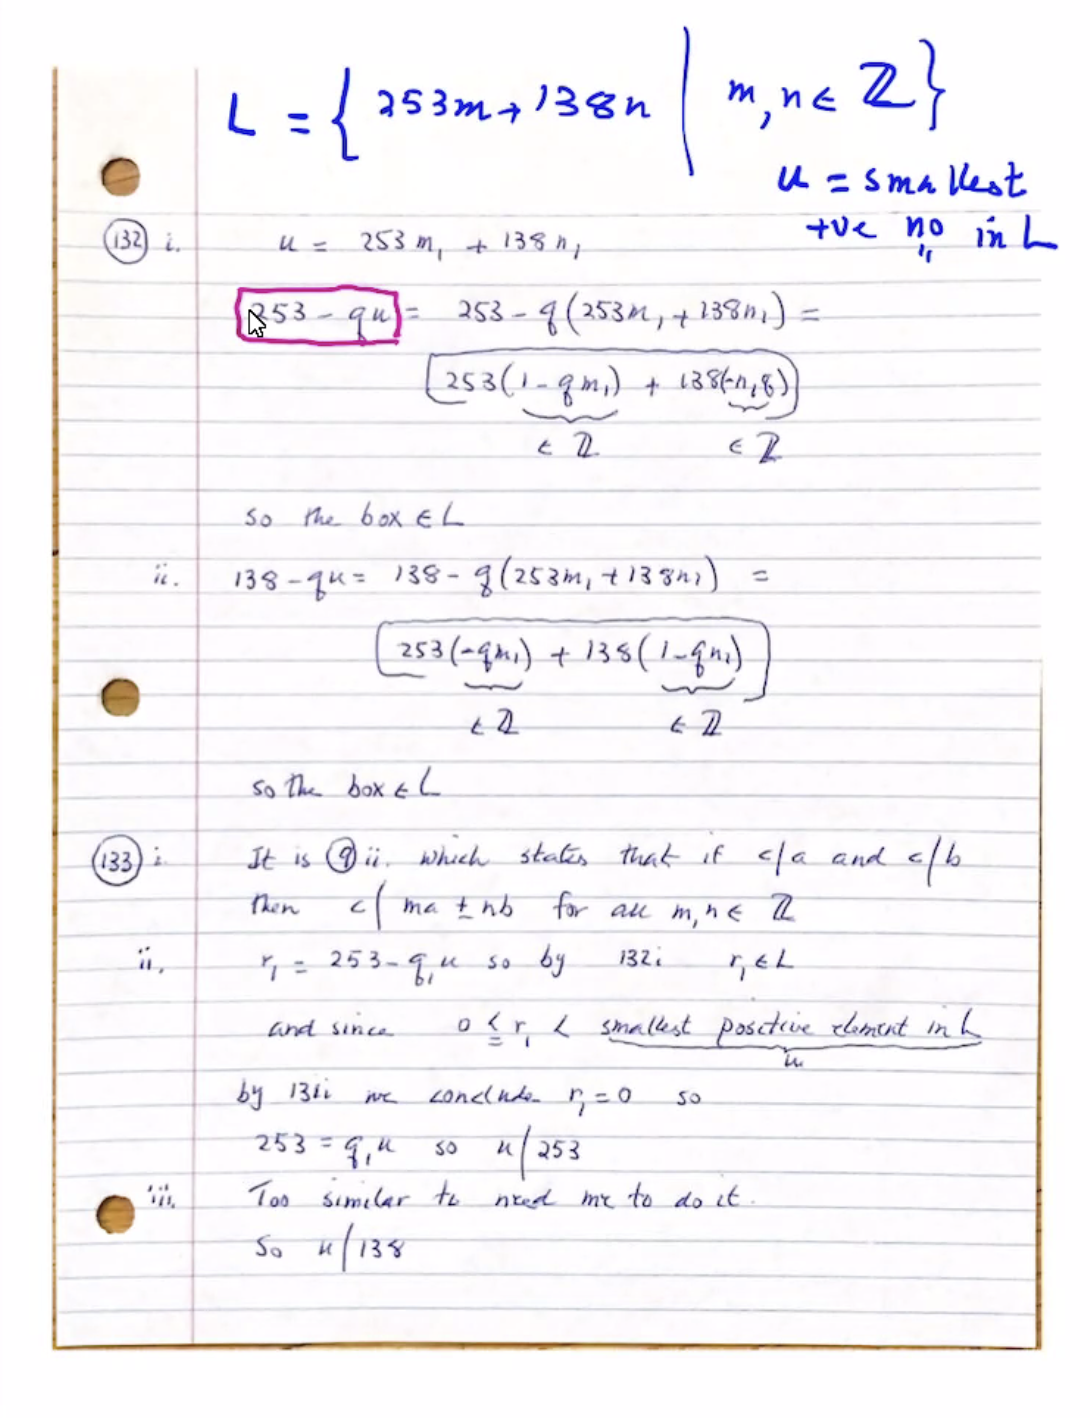 L = { 253m + 138n | m, n ∈ ℤ }
u = smallest
+ve no in L
132 i. u = 253m₁ + 138n₁
253 - qu = 253 - q(253m₁ + 138n₁) =
253(1 - qm₁) + 138(-n₁q)
∈ ℤ ∈ ℤ
so the box ∈ L
ii. 138 - qu = 138 - q(253m₁ + 138n₁) =
253(-qm₁) + 138(1 - qn₁)
∈ ℤ ∈ ℤ
so the box ∈ L
133 i. It is 9 ii. which states that if c/a and c/b
then c/ma ± nb for all m, n ∈ ℤ
ii. r₁ = 253 - q₁u so by 132i r₁ ∈ L
and since 0 ≤ r₁ < smallest positive element in L
u
by 131i we conclude r₁ = 0 so
253 = q₁u so u/253
iii. Too similar to need me to do it.
So u/138